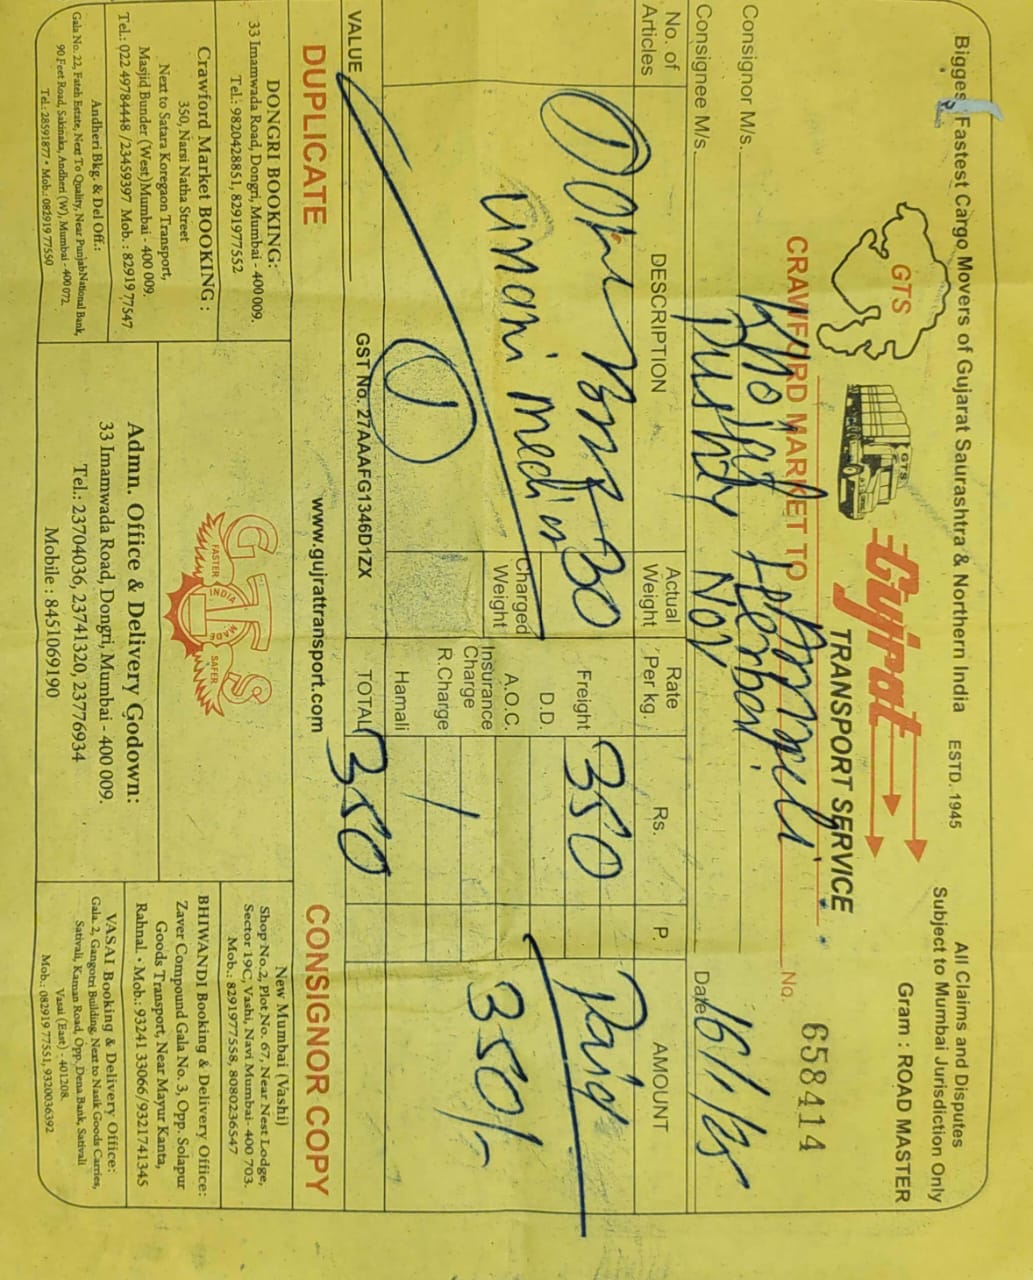 Biggest Fastest Cargo Movers of Gujarat Saurashtra & Northern India ESTD. 1945
All Claims and Disputes
Subject to Mumbai Jurisdiction Only
Gram : ROAD MASTER
GTS
GTS
Gujrat
TRANSPORT SERVICE
CRAWFORD MARKET TO
No. 658414
Consignor M/s. Khojati Herbal
Consignee M/s.
Date 16/1/25
No. of Articles
DESCRIPTION
Actual Weight
Rate Per kg.
Rs.
P.
AMOUNT
30
Freight 350
Paid
Unani
D.D.
Charged Weight
A.O.C.
350/-
Insurance Charge
R.Charge
Hamali
VALUE
GST No. 27AAAFG1346D1ZX
TOTAL 350
DUPLICATE
www.gujrattransport.com
CONSIGNOR COPY
DONGRI BOOKING:
33 Imamwada Road, Dongri, Mumbai - 400 009.
Tel.: 9820428851, 8291977552
Crawford Market BOOKING :
350, Narsi Natha Street
Next to Satara Koregaon Transport,
Masjid Bunder (West)Mumbai - 400 009.
Tel.: 022 49784448 /23459397 Mob. : 82919 77547
Andheri Bkg. & Del Off.:
Gala No. 22, Fateh Estate, Next To Quality, Near PunjabNational Bank,
90 Feet Road, Sakinaka, Andheri (W), Mumbai - 400 072.
Tel.: 28591877 • Mob.: 082919 77550
GTS
FASTER
INDIA
MADE
SAFER
Admn. Office & Delivery Godown:
33 Imamwada Road, Dongri, Mumbai - 400 009.
Tel.: 23704036, 23741320, 23776934
Mobile : 8451069190
New Mumbai (Vashi)
Shop No.2, Plot No. 67, Near Nest Lodge,
Sector 19C, Vashi, Navi Mumbai- 400 703.
Mob.: 8291977558, 8080236547
BHIWANDI Booking & Delivery Office:
Zaver Compound Gala No. 3, Opp. Solapur
Goods Transport, Near Mayur Kanta,
Rahnal. • Mob.: 93241 33066/9321741345
VASAI Booking & Delivery Office:
Gala. 2, Gangotri Building, Next to Nasik Goods Carries,
Sativali, Kaman Road, Opp. Dena Bank, Sativali
Vasai (East) - 401208.
Mob.: 082919 77551, 9320036392